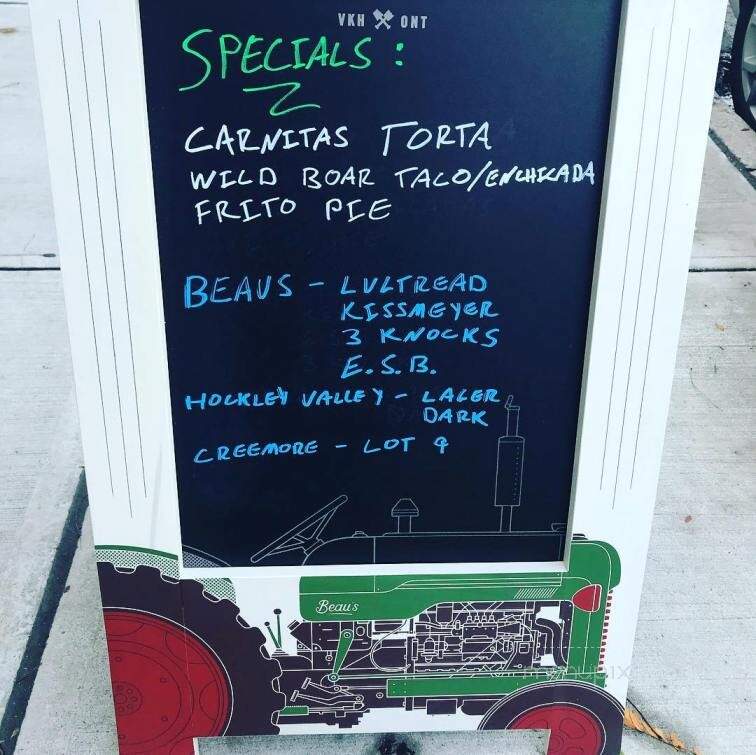 VKH ONT
SPECIALS :
CARNITAS TORTA
WILD BOAR TACO/ENCHILADA
FRITO PIE
BEAUS - LULTREAD
KISSMEYER
3 KNOCKS
E.S.B.
HOCKLEY VALLEY - LAGER
DARK
CREEMORE - LOT 9
Beau's